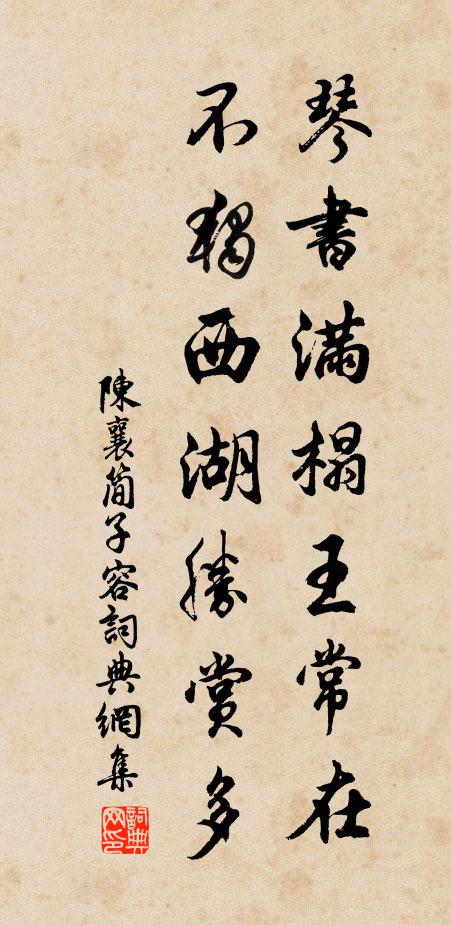 琴書滿榻王常在
不獨西湖勝賞多
陳襄簡子容詞典網集
詞典網印